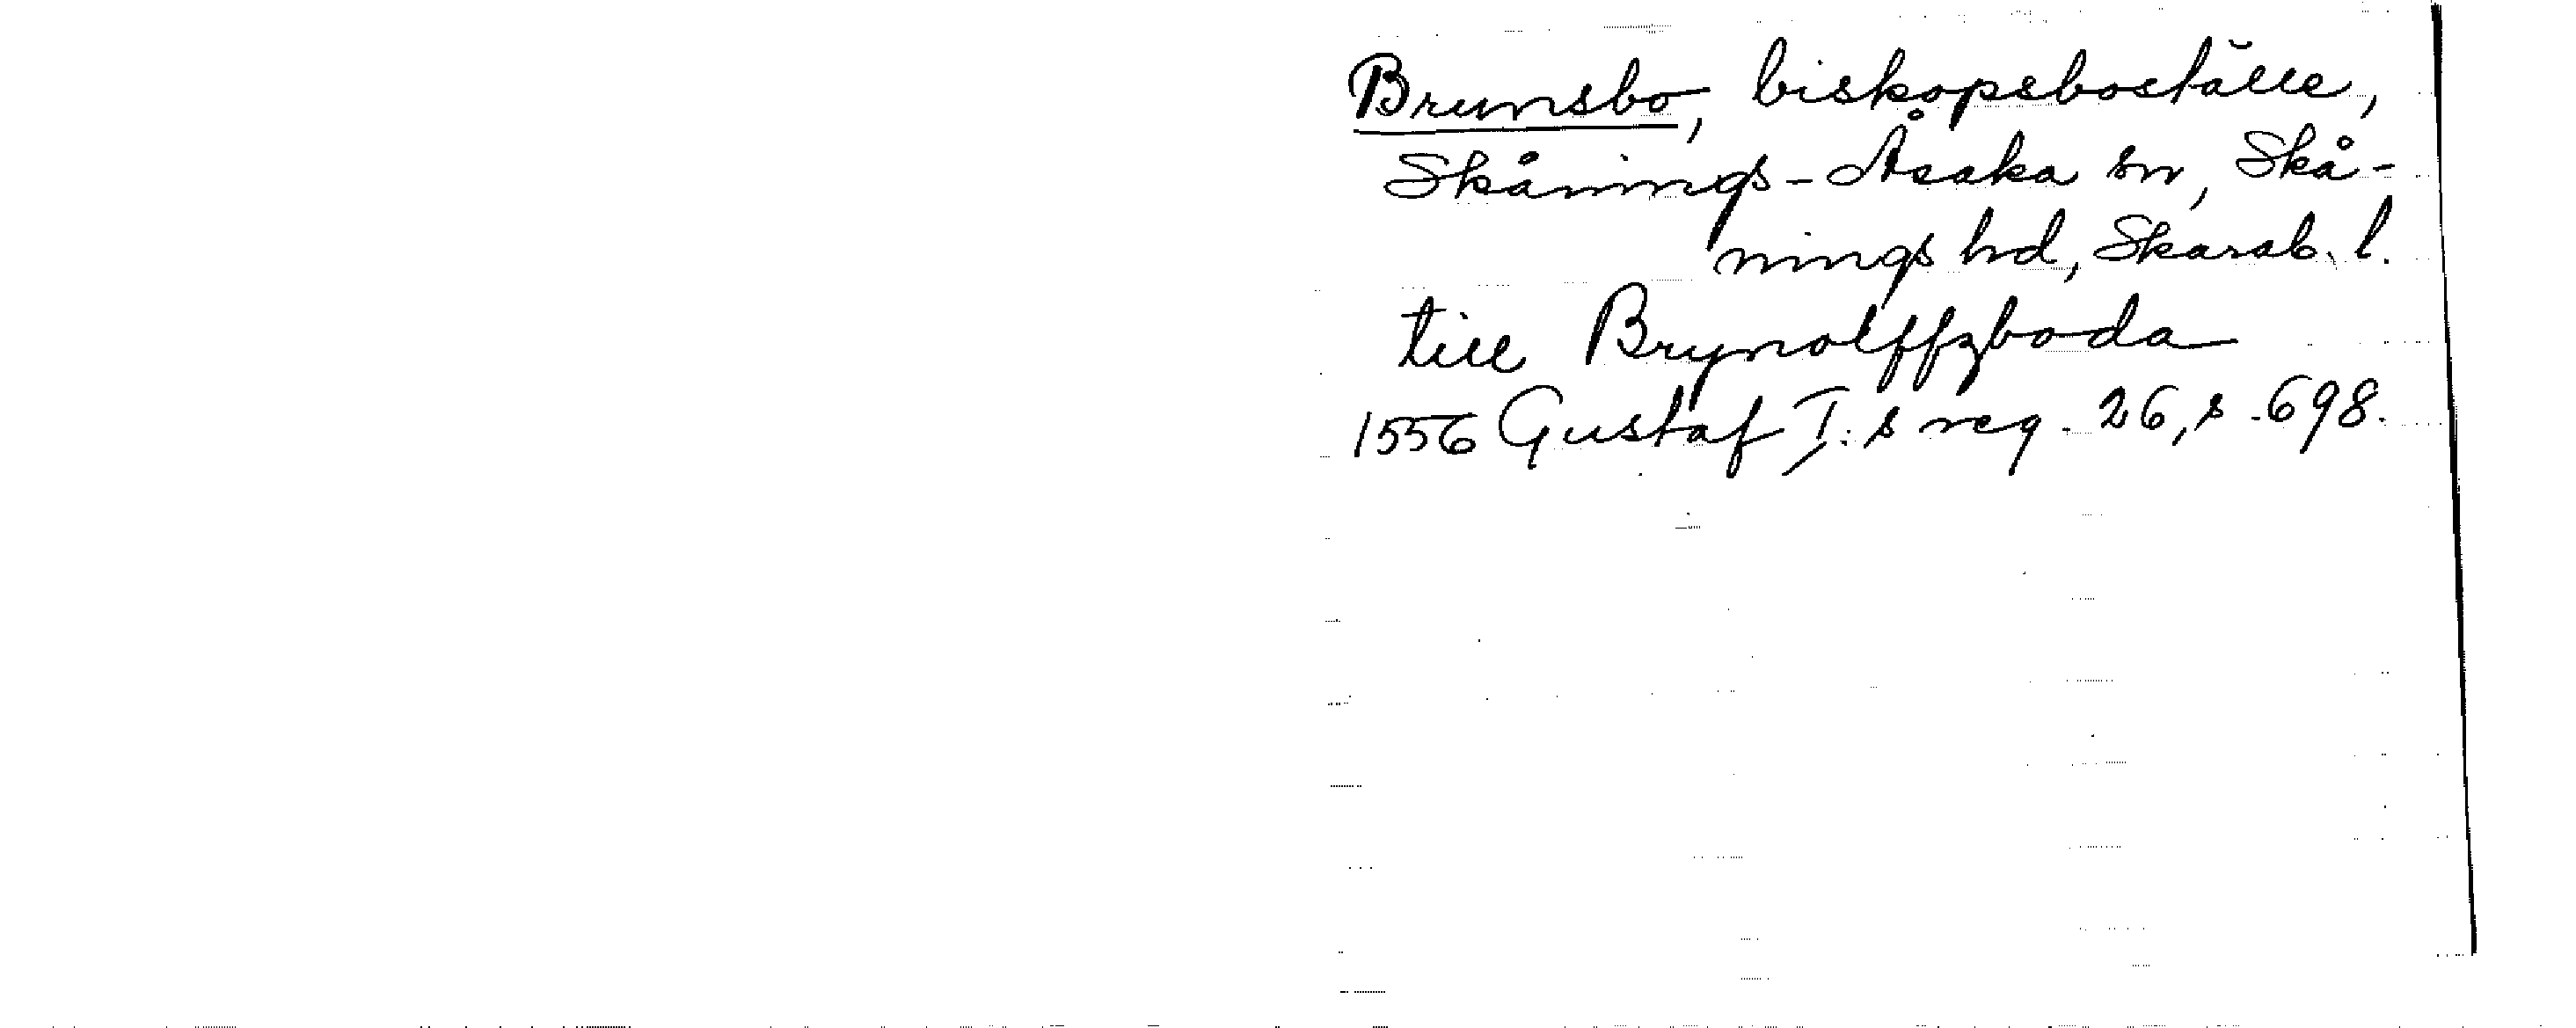 Brunsbo, biskopsboställe,
Skånings-Åsaka sn, Skå-
nings hd, Skarab. l.
till Brynolffzboda
1556 Gustaf I:s reg. 26, s. 698.